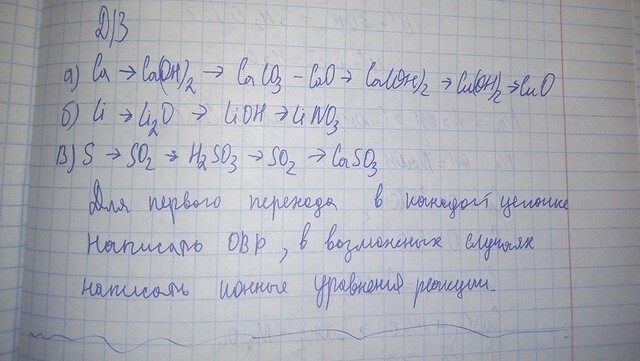 Д/З
а) Ca → Ca(OH)2 → CaCO3 - CaO → Ca(OH)2 → Cu(OH)2 → CuO
б) Li → Li2O → LiOH → LiNO3
в) S → SO2 → H2SO3 → SO2 → CaSO3
Для первого перехода в каждой цепочке
написать ОВР, в возможных случаях
написать ионные уравнения реакции